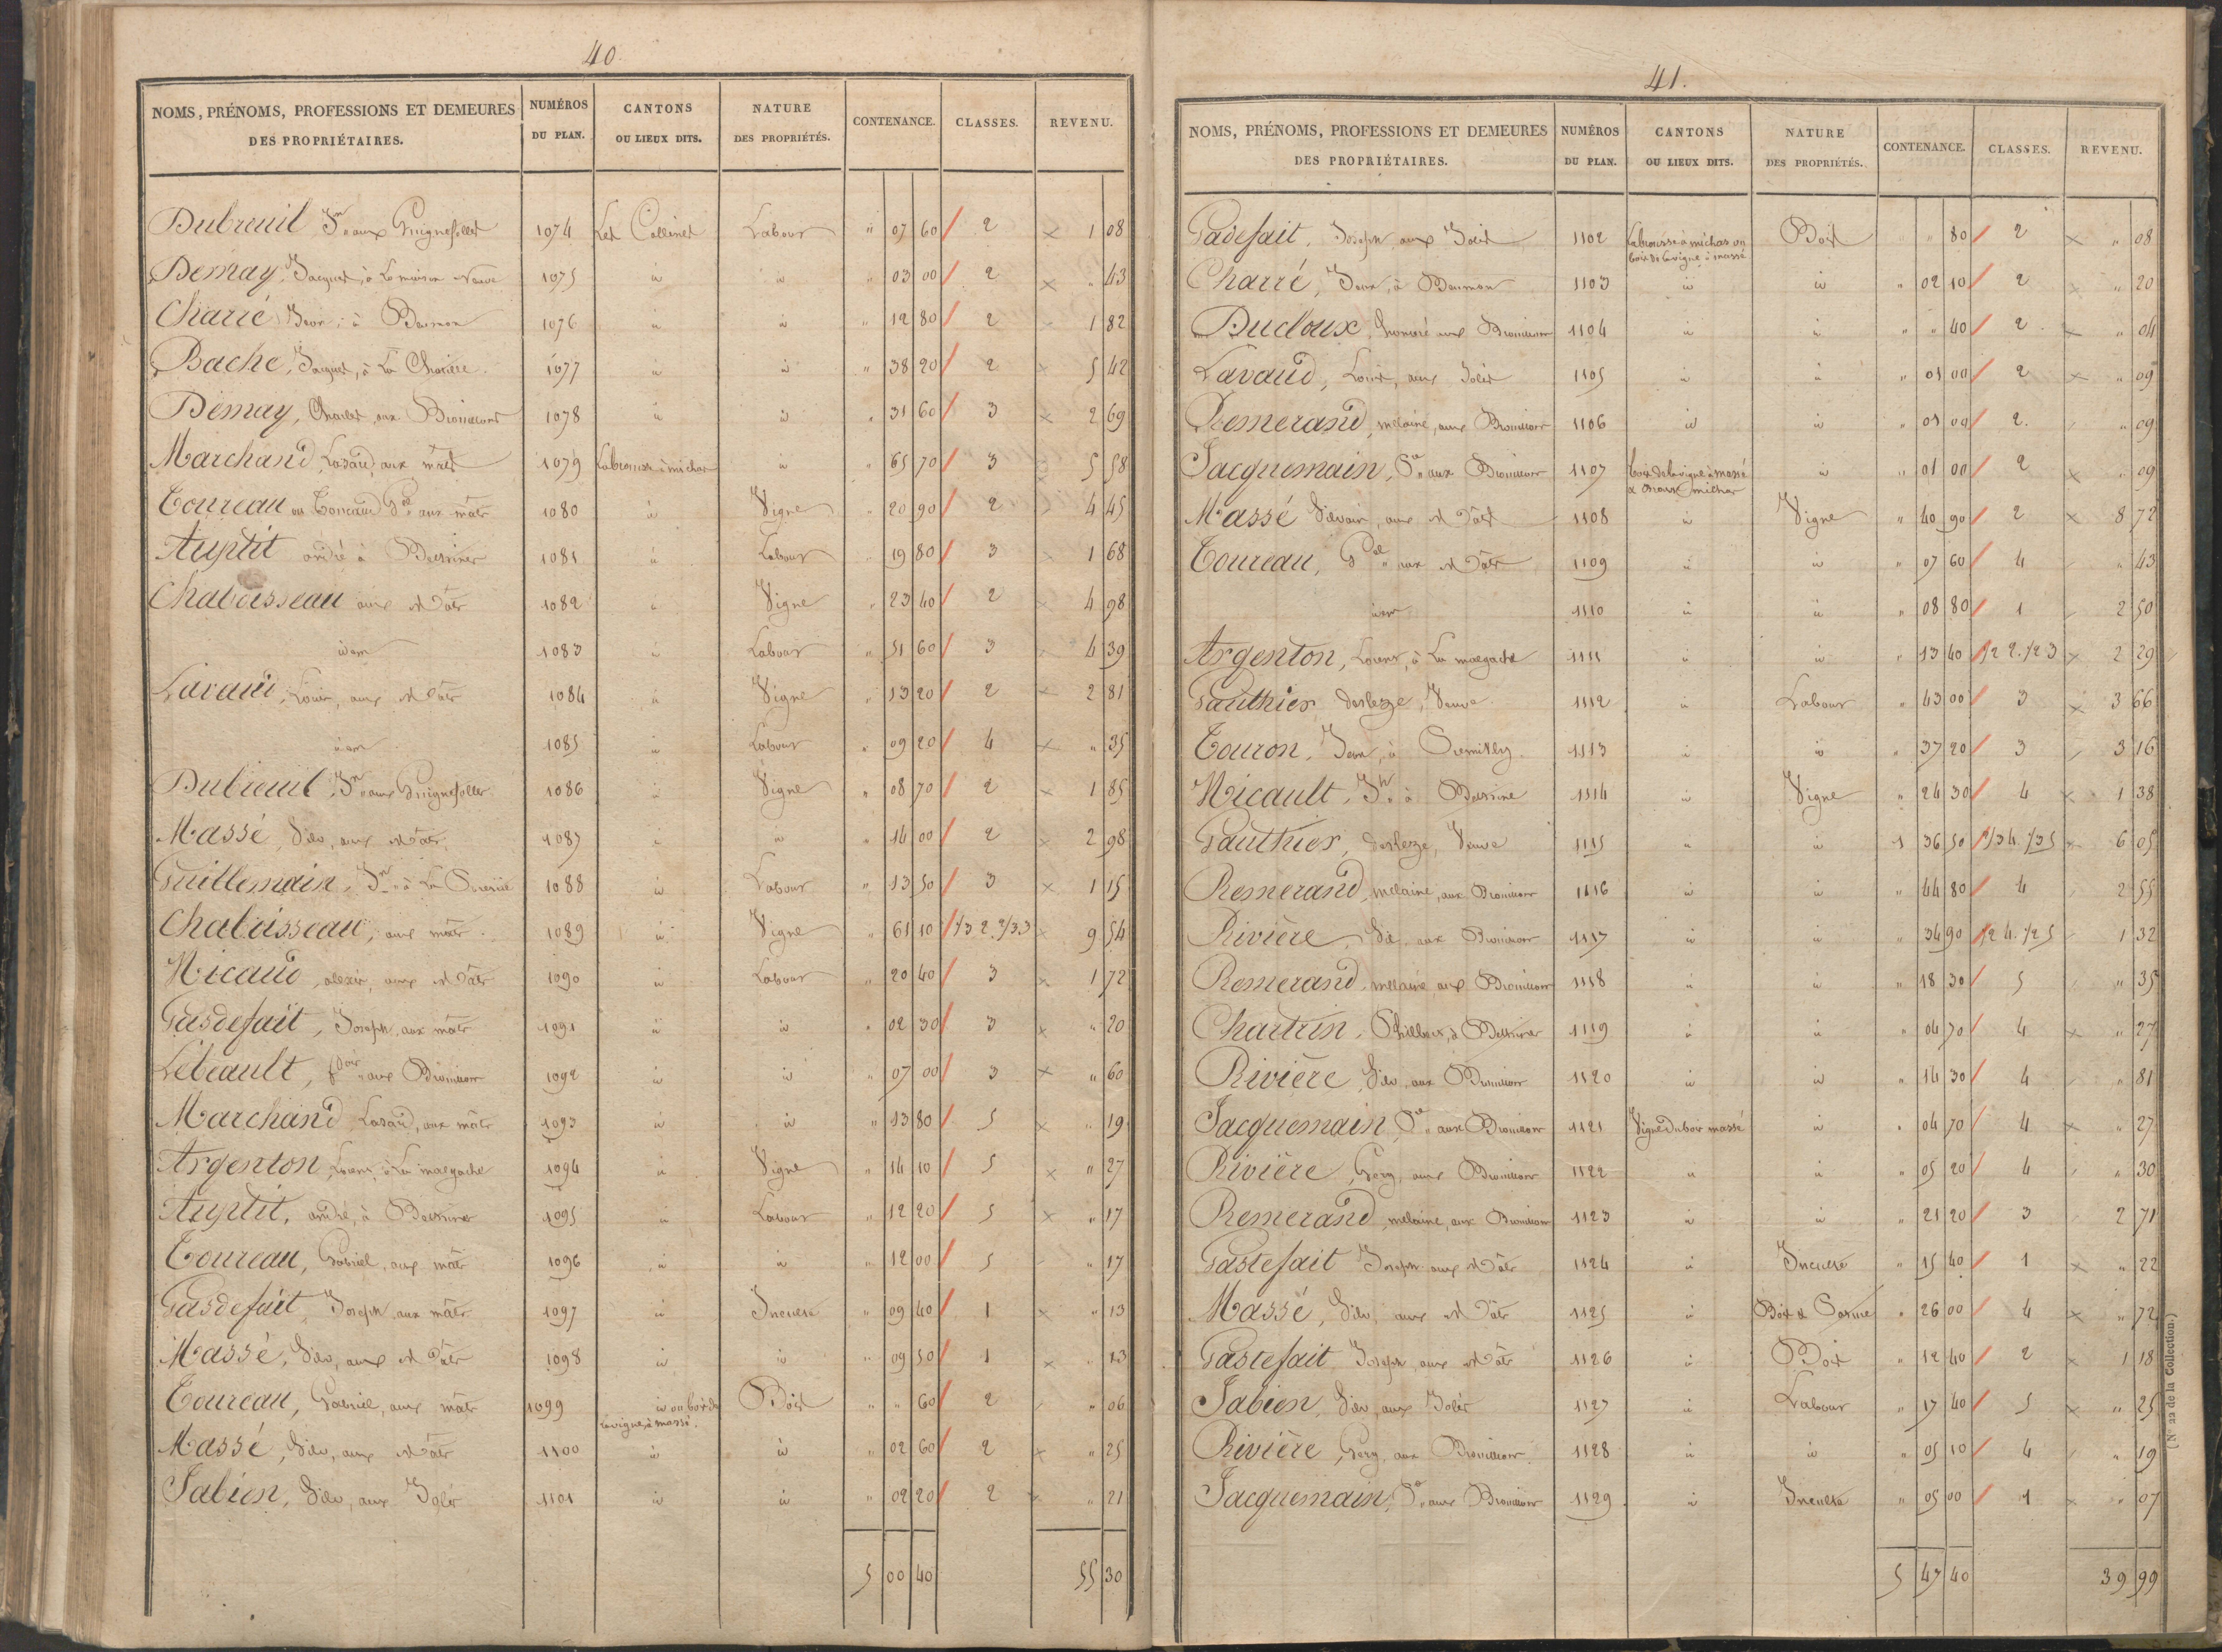 40.
NOMS, PRÉNOMS, PROFESSIONS ET DEMEURES DES PROPRIÉTAIRES. NUMÉROS DU PLAN. CANTONS OU LIEUX DITS. NATURE DES PROPRIÉTÉS. CONTENANCE. CLASSES. REVENU.
Dubreuil Jn aux 1074 Les Collines Labour " 07 60 / 2 × 1 08
Demay, Jacques, à la maison Neuve 1075 id id " 03 00 / 2 × " 43
Charré Jean, à 1076 id id " 12 80 / 2 × 1 82
Bache, Jacques, à La 1077 id id " 38 20 / 2 × 5 42
Demay, Charles, aux 1078 id id " 31 60 / 3 × 2 69
Marchand, Lazard, aux mâts 1079 Labrousse à michas id " 65 70 / 3 × 5 58
Toureau ou aux mâts 1080 id Vigne " 20 90 / 2 × 4 45
Auptit andré à 1081 id Labour " 19 80 / 3 × 1 68
Chaboisseau aux Mâts 1082 id Vigne " 23 40 / 2 × 4 98
idem 1083 id Labour " 51 60 / 3 × 4 39
Lavaud, Louis, aux Mâts 1084 id Vigne " 13 20 / 2 × 2 81
idem 1085 id Labour " 09 20 / 4 × " 35
Dubreuil, Jn aux 1086 id Vigne " 08 70 / 2 × 1 85
Massé, Silv, aux Mâts 1087 id id " 14 00 / 2 × 2 98
Guillemain, Jn à La 1088 id Labour " 13 50 / 3 × 1 15
Chaboisseau, aux mâts 1089 id Vigne " 61 10 / 1/3 2. 2/3 3 × 9 54
Nicaud, alexis, aux Mâts 1090 id Labour " 20 40 / 3 × 1 72
Gasdefait, Joseph, aux mâts 1091 id id " 02 30 / 3 × " 20
Lebeault, aux 1092 id id " 07 00 / 3 × " 60
Marchand, Lazard, aux mâts 1093 id id " 13 80 / 5 × " 19
Argenton, Lorens, à La malgache 1094 id Vigne " 14 10 / 5 × " 27
Auptit, andré, à 1095 id Labour " 12 20 / 5 × " 17
Toureau, Gabriel, aux mâts 1096 id id " 12 00 / 5 " 17
Gasdefait, Joseph, aux mâts 1097 id Inculte " 09 40 / 1 × " 13
Massé, Silv, aux Mâts 1098 id id " 09 50 / 1 × " 13
Toureau, Gabriel, aux mâts 1099 id ou bois de Bois " " 60 / 2 " 06
la vigne à massé.
Massé, Silv, aux Mâts 1100 id id " 02 60 / 2 × " 25
Fabien, Silv, aux 1101 id id " 02 20 / 2 × " 21
5 00 40 55 30
41.
NOMS, PRÉNOMS, PROFESSIONS ET DEMEURES DES PROPRIÉTAIRES. NUMÉROS DU PLAN. CANTONS OU LIEUX DITS. NATURE DES PROPRIÉTÉS. CONTENANCE. CLASSES. REVENU.
Gadefait, Joseph, aux 1102 Labrousse à michas ou Bois " " 80 / 2 × " 08
bois de la vigne à massé
Charré, Jean, à 1103 id id " 02 10 / 2 × " 20
Ducloux, honoré aux 1104 id id " " 40 / 2 × " 04
Lavaud, Louis, aux 1105 id id " 01 00 / 2 × " 09
Remerand, melaine, aux 1106 id id " 01 00 / 2. " 09
Jacquemain, aux 1107 bois de la vigne à massé id " 01 00 / 2 × " 09
Massé Silvain, aux Mâts 1108 id Vigne " 40 90 / 2 × 8 72
Toureau, aux Mâts 1109 id id " 07 60 / 4 " 43
idem 1110 id id " 08 80 / 1 2 50
Argenton, Lorens, à La malgache 1111 id id " 13 40 / 1/2 2. 1/2 3 × 2 29
Gauthier Veuve 1112 id Labour " 43 00 / 3 × 3 66
Touron, Jean, à 1113 id id " 37 20 / 3 3 16
Nicault, à 1114 id Vigne " 24 30 / 4 × 1 38
Gauthier, Veuve 1115 id id 1 36 50 / 2/3 4. 1/3 5 × 6 05
Remerand, melaine, aux 1116 id id " 44 80 / 4 2 55
Rivière, Sil, aux 1117 id id " 34 90 / 1/2 4. 1/2 5 1 32
Remerand, melaine, aux 1118 id id " 18 30 / 5 " 35
Chartrin, à 1119 id id " 04 70 / 4 × " 27
Rivière, Silv, aux 1120 id id " 14 30 / 4 " 81
Jacquemain, aux 1121 Vigne du bois massé id " 04 70 / 4 × " 27
Rivière, aux 1122 id id " 05 20 / 4 " 30
Remerand, melaine, aux 1123 id id " 21 20 / 3 2 71
Gastefait Joseph aux Mâts 1124 id Inculte " 15 40 / 1 × " 22
Massé, Silv, aux Mâts 1125 id Bois " 26 00 / 4 × " 72
Gastefait Joseph, aux Mâts 1126 id Bois " 12 40 / 2 × 1 18
Fabien, Silv, aux 1127 id Labour " 17 40 / 5 × " 25
Rivière, aux 1128 id id " 05 10 / 4 " 19
Jacquemain, aux 1129 id Inculte " 05 00 / 1 × " 07
5 47 40 39 99
(N° 22 de la Collection.)